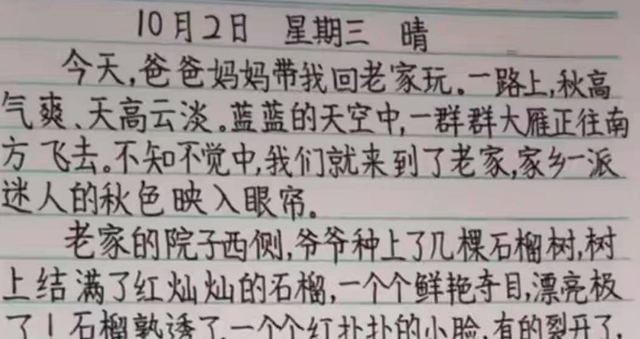 10月2日 星期三 晴
今天,爸爸妈妈带我回老家玩。一路上,秋高
气爽、天高云淡。蓝蓝的天空中,一群群大雁正往南
方飞去。不知不觉中,我们就来到了老家,家乡一派
迷人的秋色映入眼帘。
老家的院子西侧,爷爷种上了几棵石榴树,树
上结满了红灿灿的石榴,一个个鲜艳夺目,漂亮极
了!石榴熟透了,一个个红扑扑的小脸,有的裂开了,